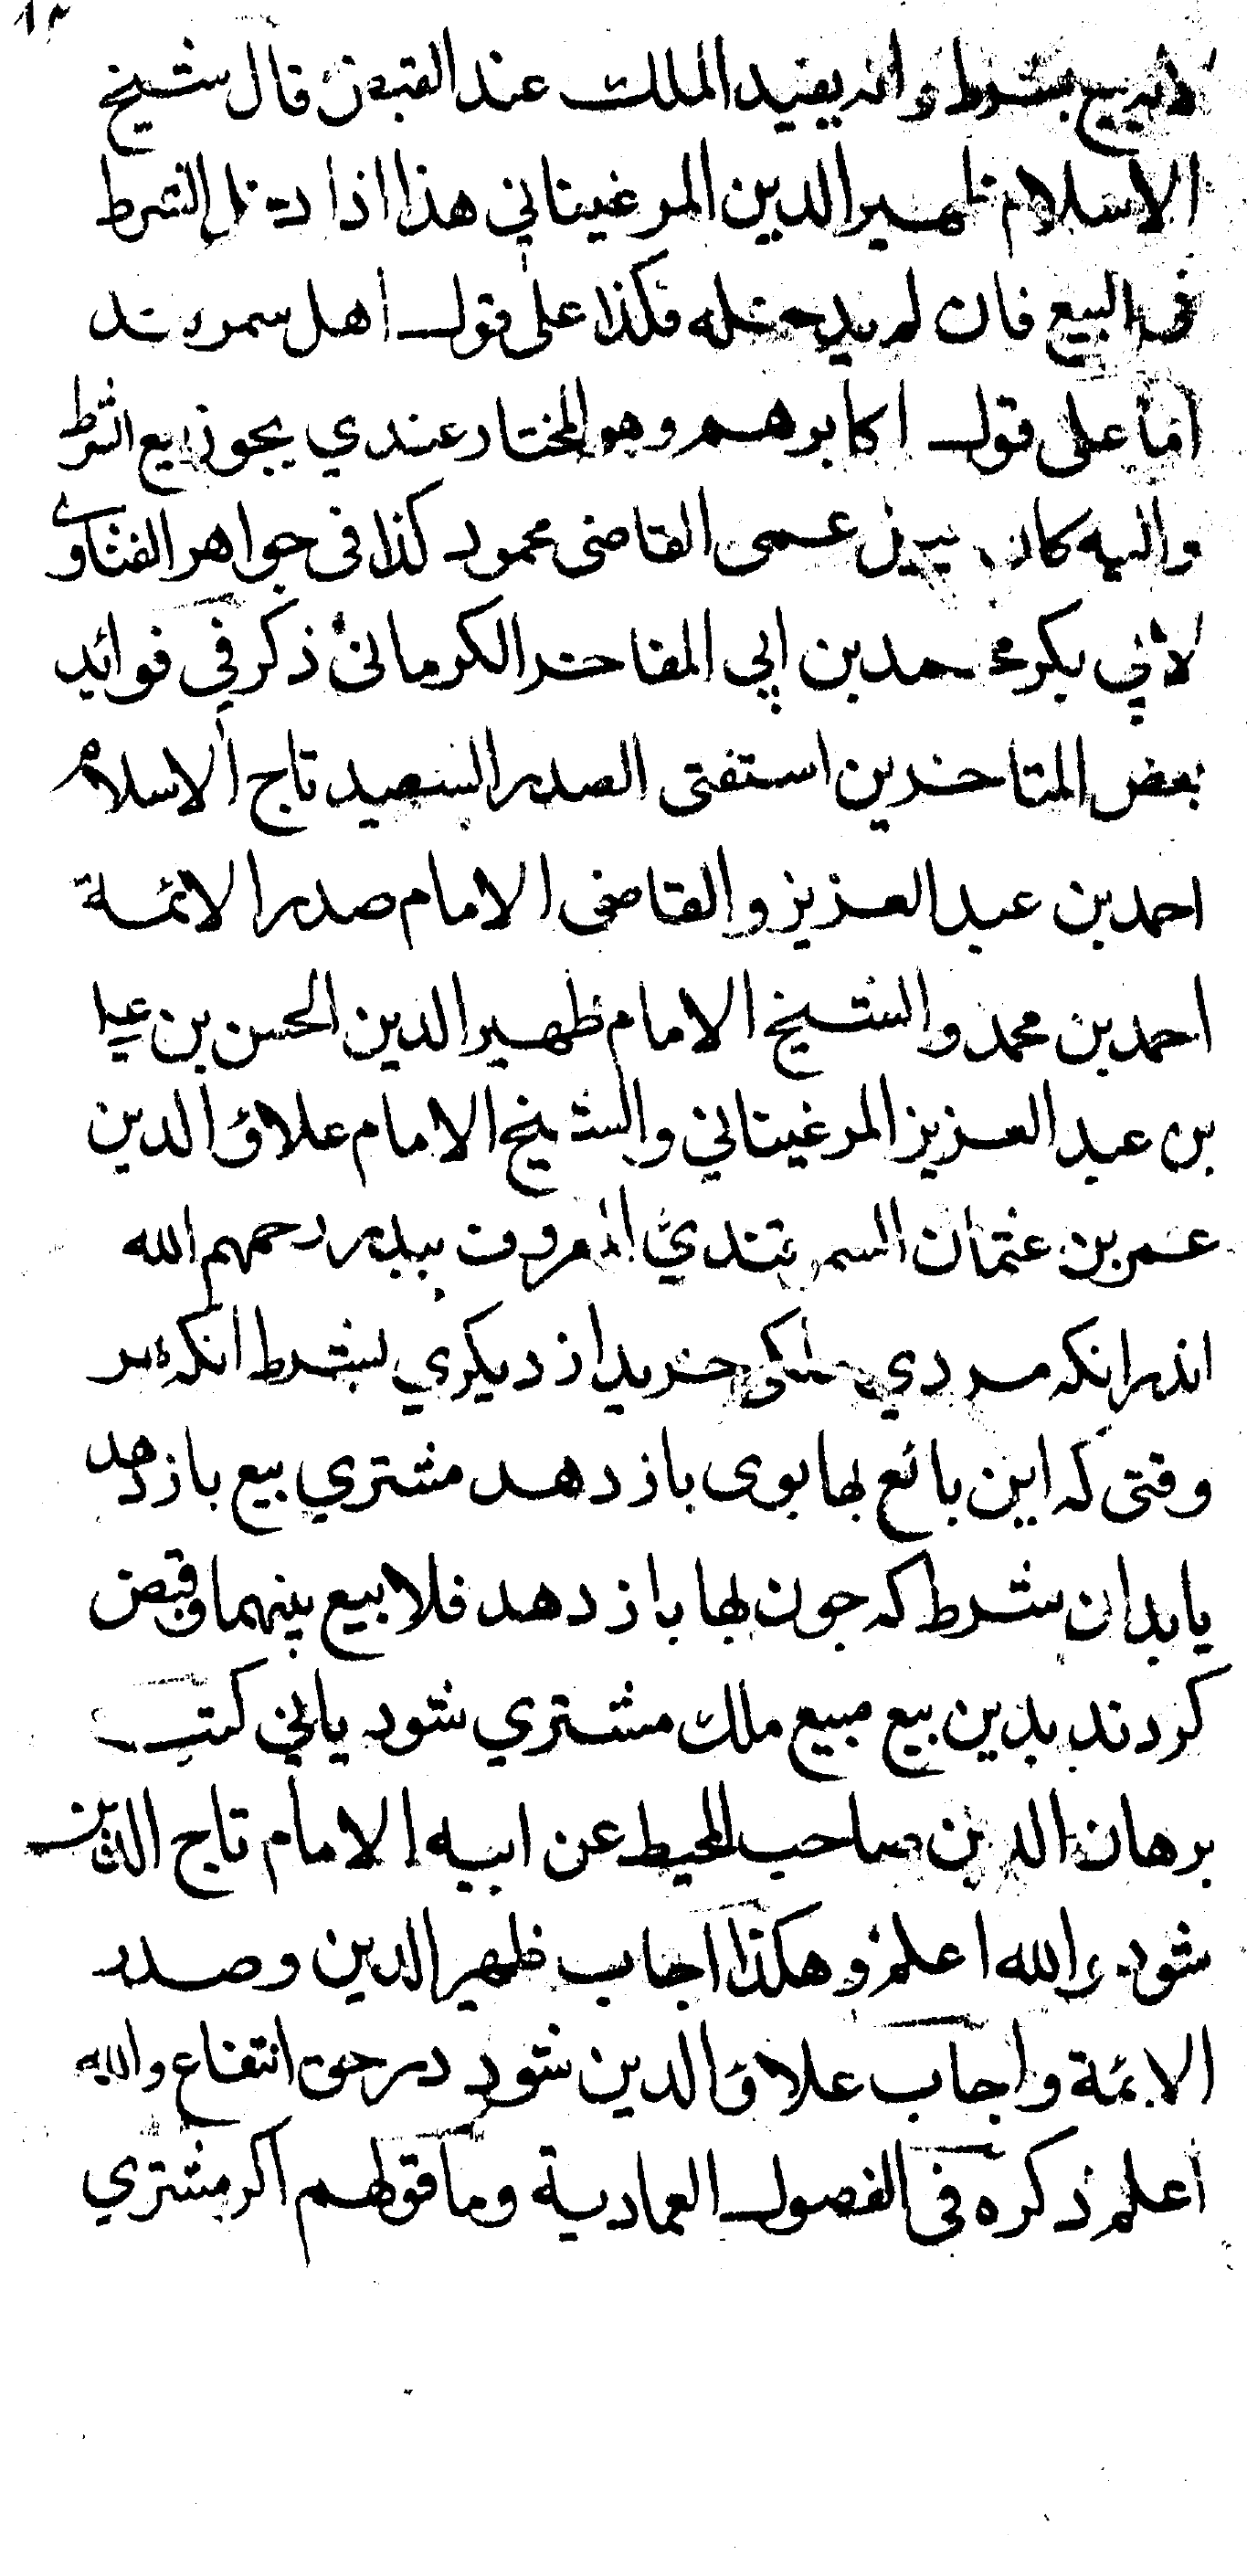 ١٣
لانه بيع بشرط وانه يفيد الملك عند القبض قال شيخ
الاسلام ظهير الدين المرغيناني هذا اذا دخل الشرط
في البيع فان لم يدخله فكذا على قول اهل سمرقند
اما على قول اكابرهم وهو المختار عندي يجوز بيع الشرط
واليه كان عمي القاضي محمود كذا في جواهر الفتاوى
لابي بكر محمد بن ابي المفاخر الكرماني ذكر في فوائد
بعض المتاخرين استفتى الصدر السعيد تاج الاسلام
احمد بن عبد العزيز والقاضى الامام صدر الائمة
احمد بن محمد والشيخ الامام ظهير الدين الحسن بن علي
بن عبد العزيز المرغيناني والشيخ الامام علاؤ الدين
عمر بن عثمان السمرقندي المعروف ببدر رحمهم الله
اندرانكه مردي ملكى خريد از ديكري بشرط انكه هر
وقتى كه اين بائع بها بوى باز دهد مشتري بيع باز دهد
يا بدان شرط كه جون بها باز دهد فلا بيع بينهما وقبض
كردند بدين بيع مبيع ملك مشتري شود ياني كتب
برهان الدين صاحب المحيط عن ابيه الامام تاج الدين
شود والله اعلم وهكذا اجاب ظهير الدين وصدر
الائمة واجاب علاؤ الدين شود در حق انتفاع والله
اعلم ذكره في الفصول العمادية وما قولهم اكر مشتري